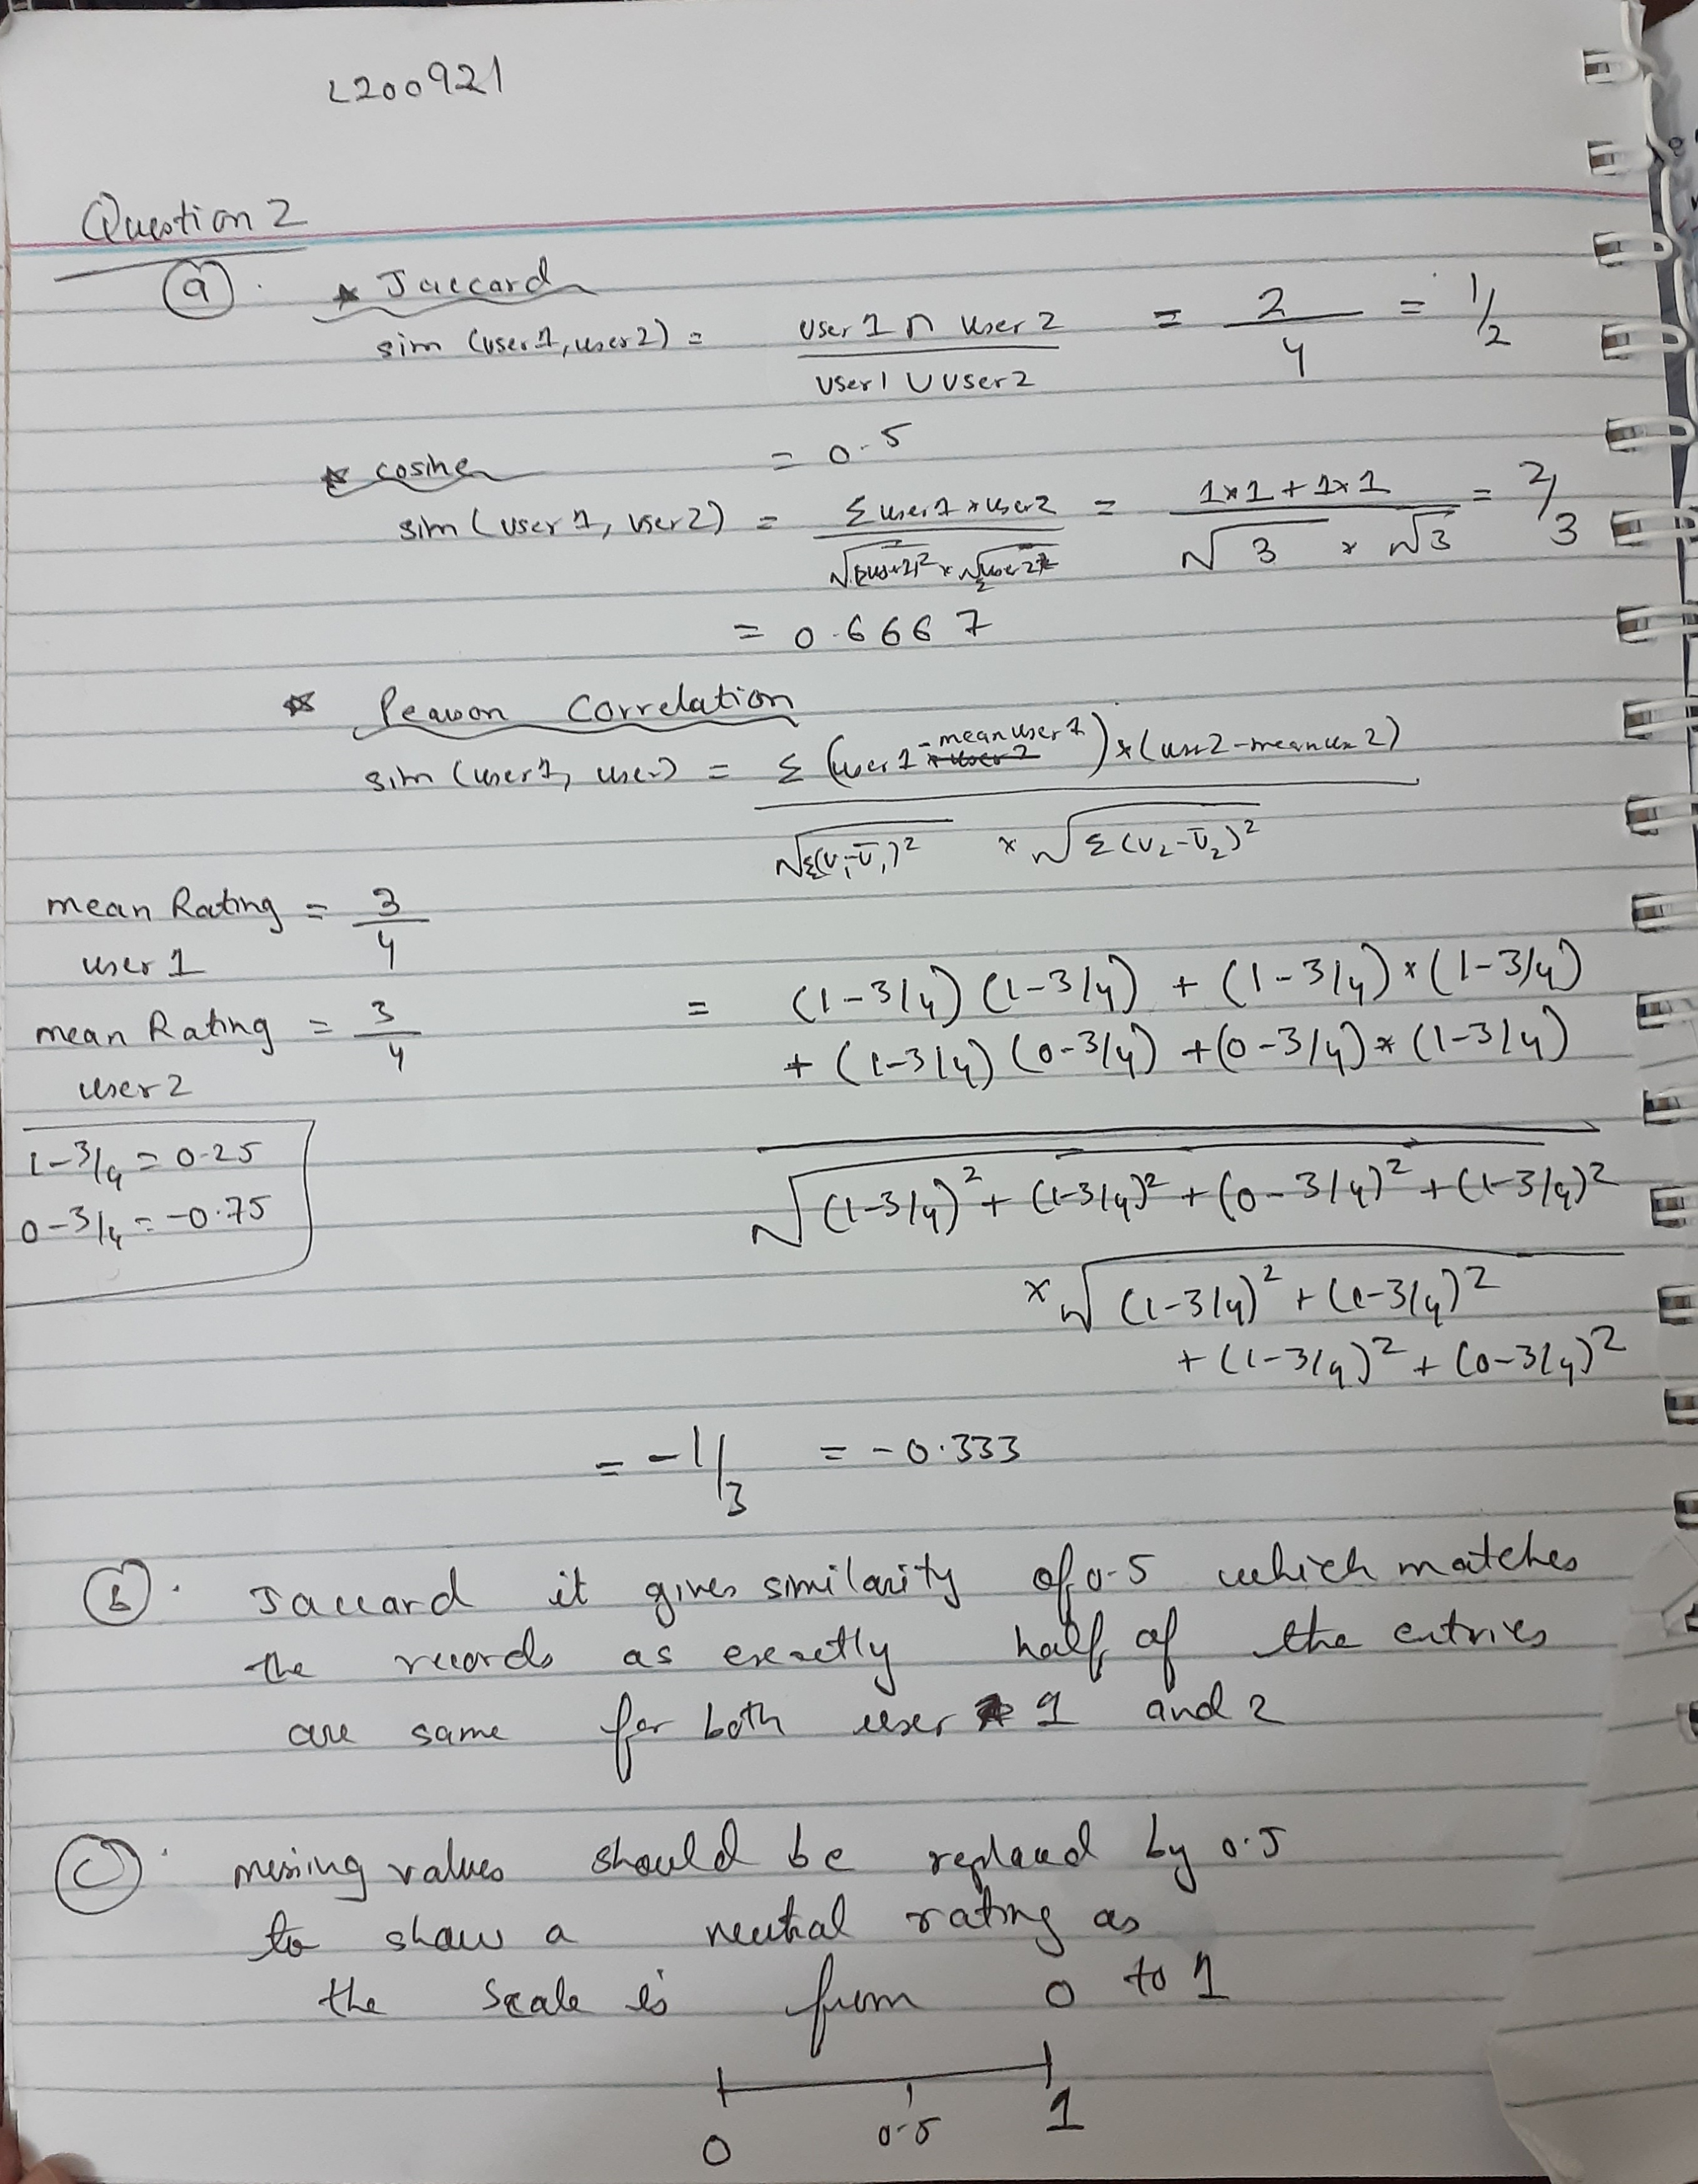 L200921
Question 2
(a). * Jaccard
sim (user 1, user 2) = user 1 ∩ user 2 / user 1 ∪ user 2 = 2/4 = 1/2
= 0.5
* cosine
sim (user 1, user 2) = Σ user 1 * user 2 / = 1*1 + 1*1 / √3 * √3 = 2/3
= 0.6667
* Pearson Correlation
sim (user 1, user) = Σ (user 1 - mean user 1) * (user 2 - mean user 2)
√Σ(U₁-Ū₁)² × √Σ(U₂-Ū₂)²
mean Rating user 1 = 3/4
mean Rating user 2 = 3/4
1-3/4 = 0.25
0-3/4 = -0.75
= (1-3/4) (1-3/4) + (1-3/4) * (1-3/4)
+ (1-3/4) (0-3/4) + (0-3/4) * (1-3/4)
√(1-3/4)² + (1-3/4)² + (0-3/4)² + (1-3/4)²
× √(1-3/4)² + (1-3/4)²
+ (1-3/4)² + (0-3/4)²
= -1/3 = -0.333
(b). Jaccard it gives similarity of 0.5 which matches
the records as exactly half of the entries
are same for both user 1 and 2
(C). missing values should be replaced by 0.5
to show a neutral rating as
the scale is from 0 to 1
0 0.5 1